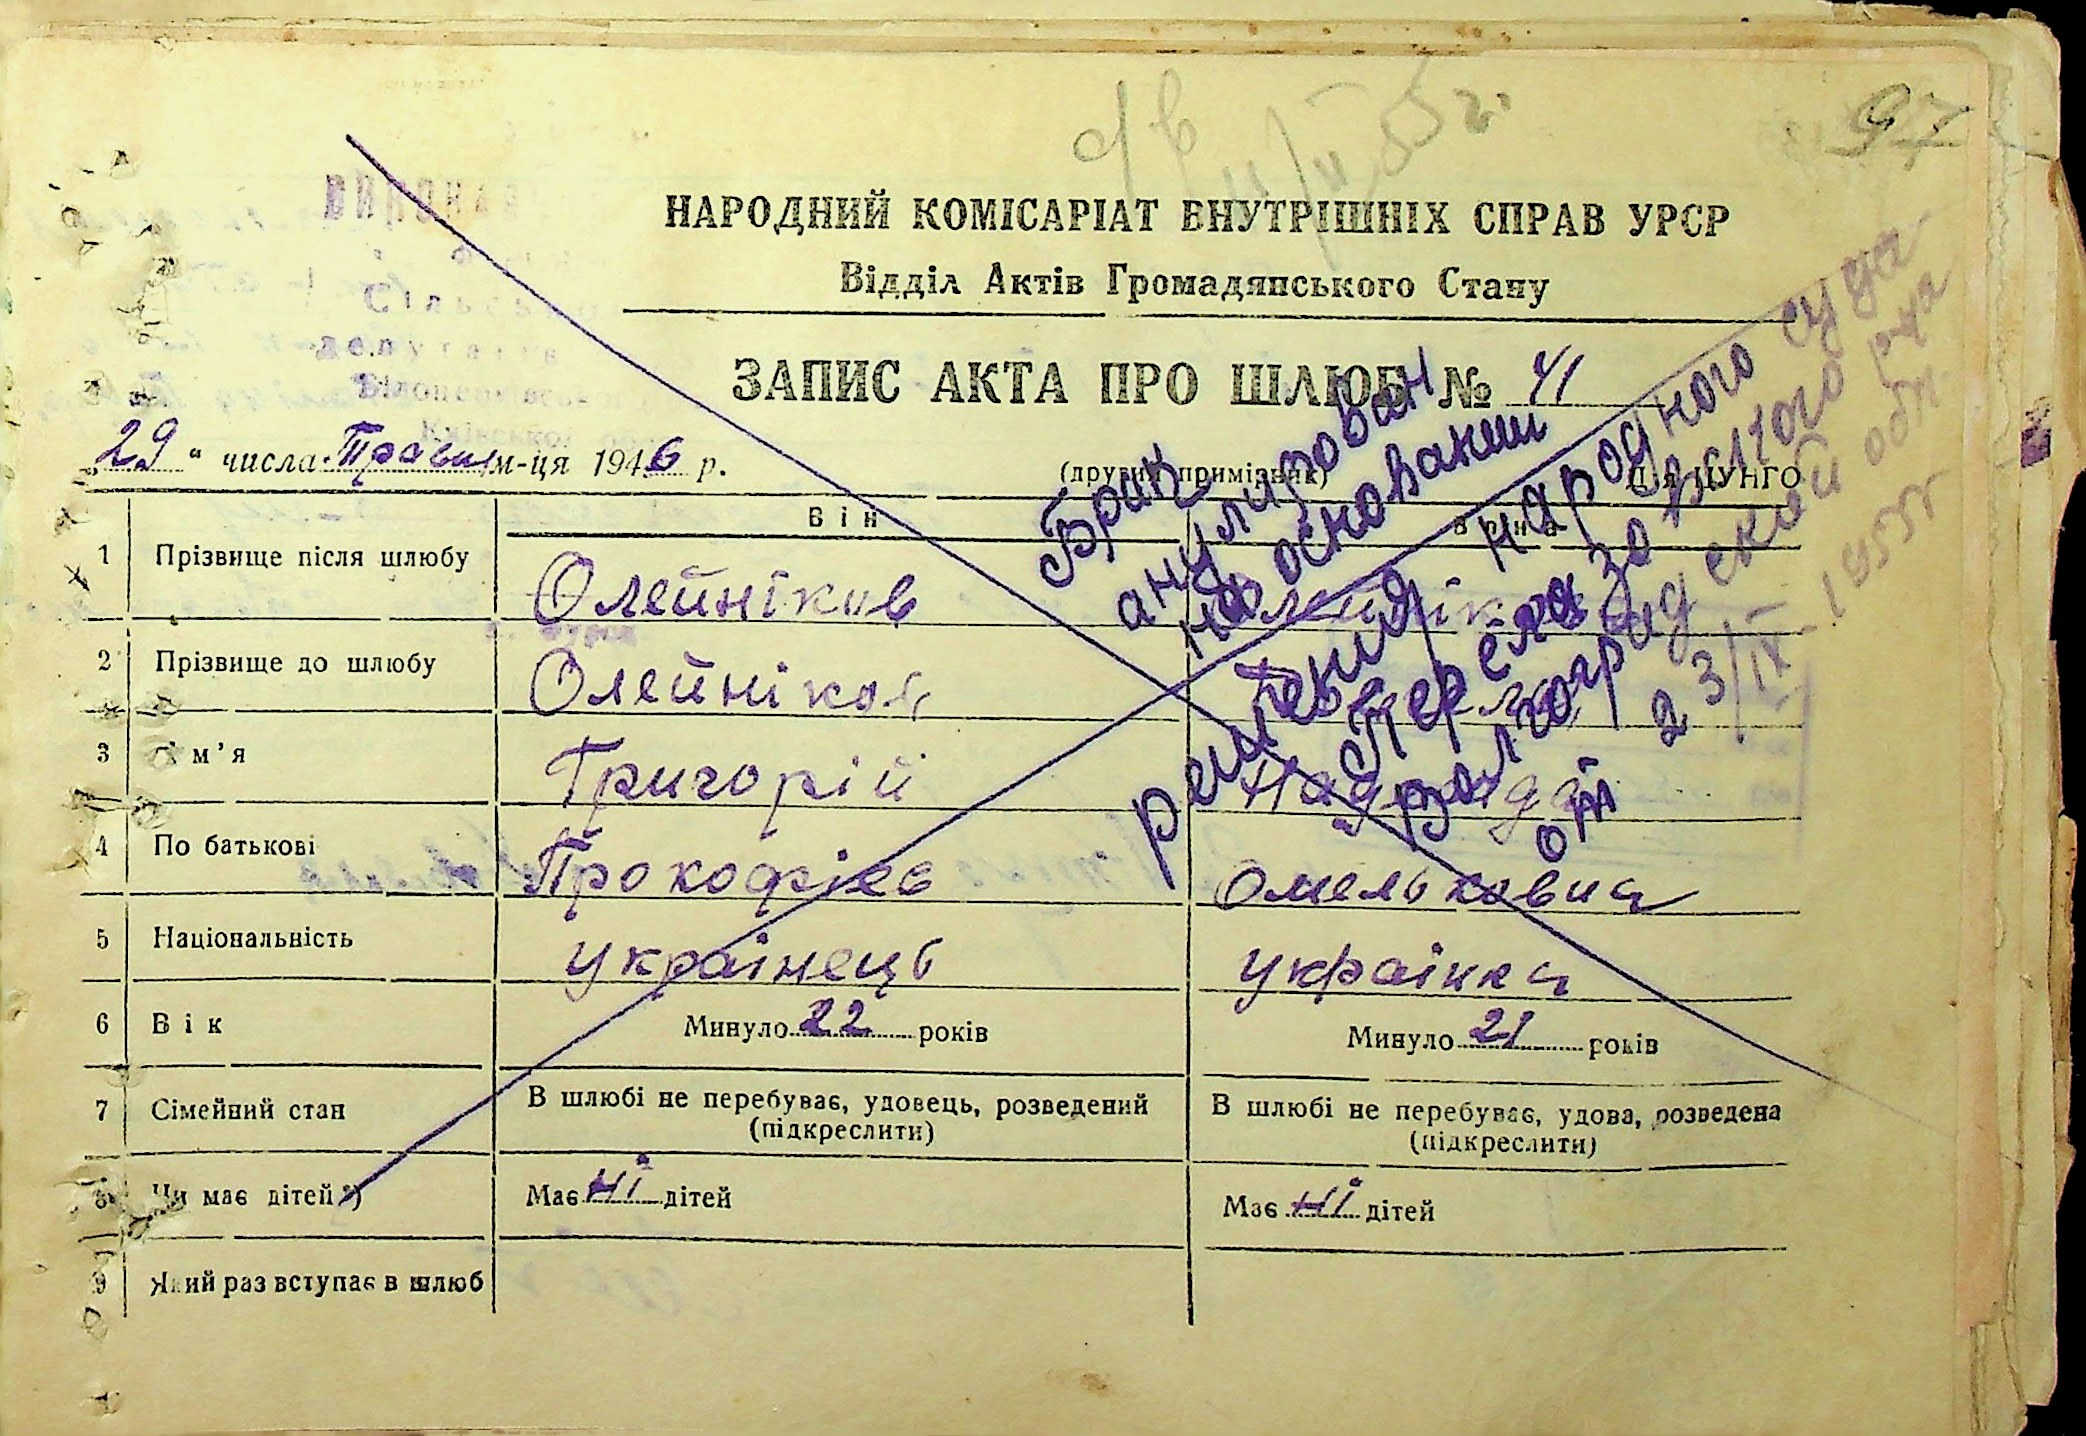 97
11/II 55 г.
НАРОДНИЙ КОМІСАРІАТ ВНУТРІШНІХ СПРАВ УРСР
Відділ Актів Громадянського Стану
ЗАПИС АКТА ПРО ШЛЮБ № 41
„29" числа Травня м-ця 1946 р.
(другий примірник) Для ЦУНГО
Він Вона
1 Прізвище після шлюбу Олейніков Олейніков
2 Прізвище до шлюбу Олейніков
3 Ім'я Григорій Надежда
4 По батькові Прокофієв Омельковна
5 Національність українець українка
6 Вік Минуло 22 років Минуло 21 років
7 Сімейний стан В шлюбі не перебуває, удовець, розведений (підкреслити) В шлюбі не перебуває, удова, розведена (підкреслити)
8 Чи має дітей *) Має ні дітей Має ні дітей
9 Який раз вступає в шлюб
Брак
анулирован
на основании
решения народного суда
Перелазовского р-на
Волгоградской обл.
от 23/IX-1955г